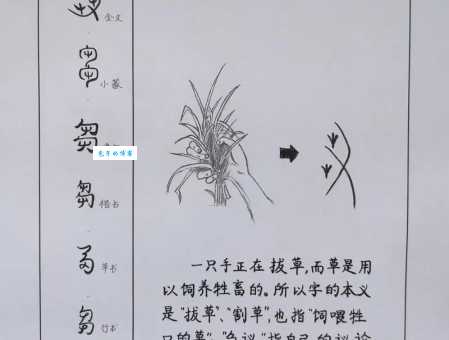 金文
小篆
芻
楷书
芻
草书
行书
一只手正在拔草,而草是用
以饲养牲畜的。所以字的本义
是"拔草"、"割草",也指"饲喂牲
口的草"。"刍议"指自己的议论